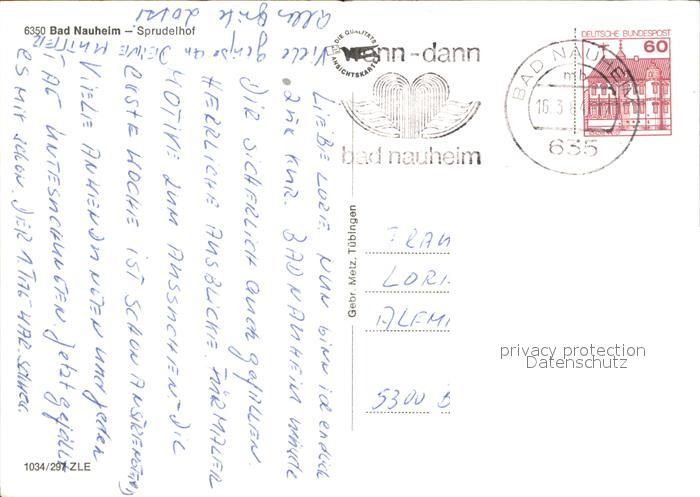 6350 Bad Nauheim – Sprudelhof
LIEBE LORE, NUN BINN ICH ENDLICH
ZUR KUR. BAD NAUHEIM WÜRDE
DIR SICHERLICH AUCH GEFALLEN.
HERRLICHE AUSBLICKE. FÜR MALER
MOTIVE ZUM AUSSUCHEN. DIE
ERSTE WOCHE IST SCHON ANSTRENGEND,
VIELE ANWENDUNGEN UND JEDEN
TAG UNTERSUCHUNGEN. JETZT GEFÄLLT
ES MIR SCHON. DER 1 TAG WAR SCHWER.
Alles gute
Viele grüße an DEINE MUTTER
1034/297 ZLE
Gebr. Metz, Tübingen
FÜR DIE QUALITÄTS
ANSICHTSKARTE
wann - dann
bad nauheim
BAD NAUHEIM
mb
16.3.84
635
DEUTSCHE BUNDESPOST
60
FRAU
LORE
ALEMI
5300 B
privacy protection
Datenschutz